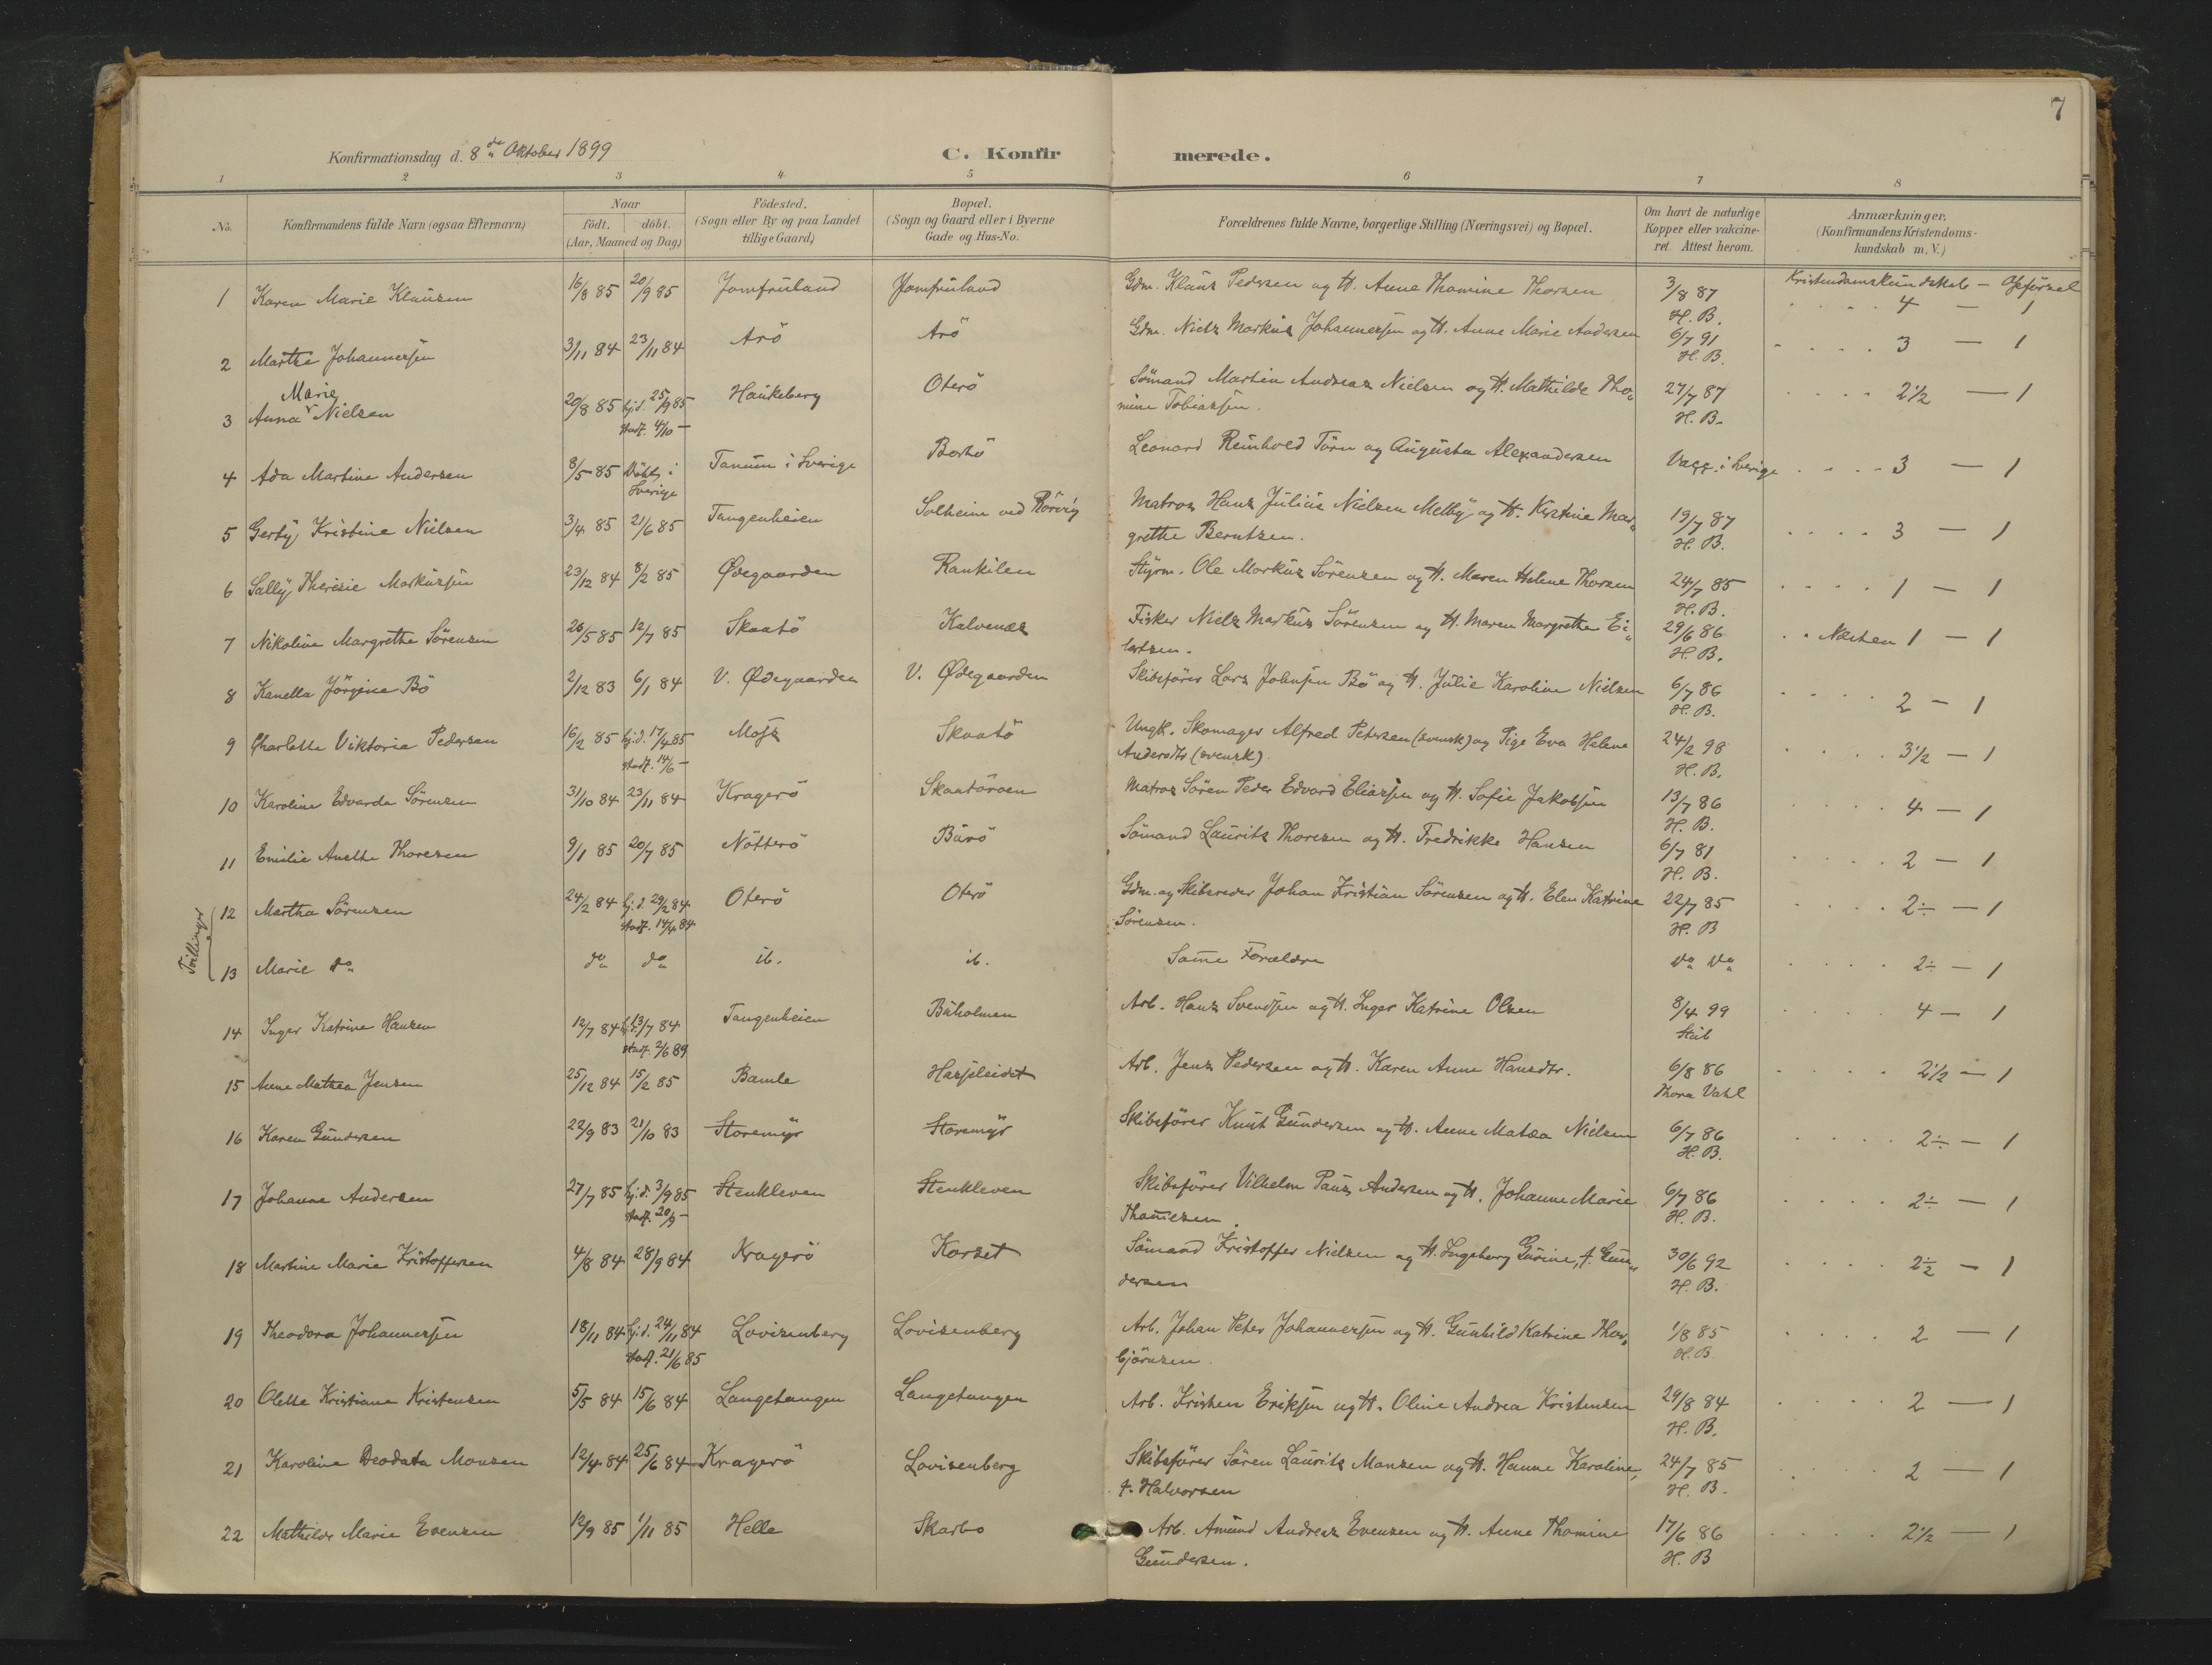 7
Konfirmationsdag d. 8de Oktober 1899
C. Konfirmerede.
1 2 3 4 5 6 7 8
No. Konfirmandens fulde Navn (ogsaa Efternavn) Naar født. døbt. (Aar, Maaned og Dag) Fødested. (Sogn eller By og paa Landet tillige Gaard) Bopæl. (Sogn og Gaard eller i Byerne Gade og Hus-No. Forældrenes fulde Navne, borgerlige Stilling (Næringsvei) og Bopæl. Om havt de naturlige Kopper eller vakcineret. Attest herom. Anmærkninger. (Konfirmandens Kristendomskundskab m. V.)
Kristendomskundskab — Opförsel
1 Karen Marie Klausen 16/8 85 20/9 85 Jomfruland Jomfruland Gdm. Klaus Pedersen og H. Anne Thomine Thorsen 3/8 87 H. B. 4 — 1
2 Marthe Johannesen 3/11 84 23/11 84 Arö Arö Gdm. Niels Markus Johannesen og H. Anne Marie Andersen 6/7 91 H. B. 3 — 1
3 Anna Marie Nielsen 20/8 85 hj.d. 25/9 85 stadf. 4/10 — Haukeberg Oterö Sömand Martin Andreas Nielsen og H. Mathilde Tho„
mine Tobiassen. 27/7 87 H. B. 2 1/2 — 1
4 Ada Martine Andersen 8/5 85 Döbt i Sverige Tanum i Sverige Borö Leonard Reinhold Törn og Augusta Alexandersen Vacc. i Sverige 3 — 1
5 Gerty Kristine Nielsen 3/4 85 21/6 85 Tangenheien Solheim ved Rörvig Matros Hans Julius Nielsen Melby og H. Kirstine Mar„
grethe Berntsen. 19/7 87 H. B. 3 — 1
6 Sally Theresie Markussen 23/12 84 8/2 85 Ødegaarden Rankilen Styrm. Ole Markus Sörensen og H. Maren Helene Thorsen 24/7 85 H. B. 1 — 1
7 Nikoline Margrethe Sörensen 26/5 85 12/7 85 Skaatö Kalvenæs Fisker Niels Markus Sörensen og H. Maren Margrethe Ei„
lertsen. 29/6 86 H. B. Næsten 1 — 1
8 Kanella Jörgine Bö 2/12 83 6/1 84 V. Ødegaarden V. Ødegaarden Skibsförer Lars Johnsen Bö og H. Julie Karoline Nielsen 6/7 86 H. B. 2 — 1
9 Charlotte Viktoria Pedersen 16/2 85 hj.d. 17/4 85 stadf. 14/6 — Moss Skaatö Ungk. Skomager Alfred Petersen (svensk) og Pige Eva Helene
Andersdtr (svensk) 24/2 98 H. B. 3 1/2 — 1
10 Karoline Edvarda Sörensen 31/10 84 23/11 84 Kragerö Skaatöroen Matros Sören Peder Edvard Eliassen og H. Sofie Jakobsen 13/7 86 H. B. 4 — 1
11 Emilie Anette Thoresen 9/1 85 20/7 85 Nötterö Bärö Sömand Laurits Thoresen og H. Fredrikke Hansen 6/7 81 H. B. 2 — 1
Tvillinger
12 Martha Sörensen 24/2 84 hj.d. 29/2 84 stadf. 14/4 84 Oterö Oterö Gdm. og Skibsreder Johan Kristian Sörensen og H. Elen Katrine
Sörensen. 22/7 85 H. B 2÷ — 1
13 Marie do do do ib. ib. Samme Forældre do do 2÷ — 1
14 Inger Katrine Hansen 12/7 84 hj.d. 13/7 84 stadf. 2/6 89 Tangenheien Buholmen Arb. Hans Svendsen og H. Inger Katrine Olsen 8/4 99 Stub 4 — 1
15 Anne Mathea Jensen 25/12 84 15/2 85 Bamle Hasseleidet Arb. Jens Pedersen og H. Karen Anne Hansdtr. 6/8 86 Thora Vahl 2 1/2 — 1
16 Karen Gundersen 22/9 83 21/10 83 Storemyr Storemyr Skibsförer Knut Gundersen og H. Anne Matea Nielsen 6/7 86 H. B. 2÷ — 1
17 Johanne Andersen 27/7 85 hj.d. 3/9 85 stadf. 20/9 — Stenkleven Stenkleven Skibsförer Vilhelm Paus Andersen og H. Johanne Marie
6/7 86 H. B. 2÷ — 1
18 Martine Marie Kristoffersen 4/8 84 28/9 84 Kragerö Korset Sömand Kristoffer Nielsen og H. Ingeborg Gurine, f. Gun„
dersen 30/6 92 H. B. 2 1/2 — 1
19 Theodora Johannesen 18/11 84 hj.d. 24/11 84 stadf. 21/6 85 Lovisenberg Lovisenberg Arb. Johan Peter Johannesen og H. Gunhild Katrine Thor„
björnsen 1/8 85 H. B. 2 — 1
20 Olette Kristiane Kristensen 5/5 84 15/6 84 Langetangen Langetangen Arb. Kristen Eriksen og H. Oline Andrea Kristensen 29/8 84 H. B. 2 — 1
21 Karoline Deodata Monsen 12/4 84 25/6 84 Kragerö Lovisenberg Skibsförer Sören Laurits Monsen og H. Hanne Karoline,
f. Halvorsen 24/7 85 H. B. 2 — 1
22 Mathilde Marie Evensen 12/9 85 1/11 85 Helle Skarbo Arb. Amund Andreas Evensen og H. Anne Thomine
Gundersen. 17/6 86 H. B 2 1/2 — 1